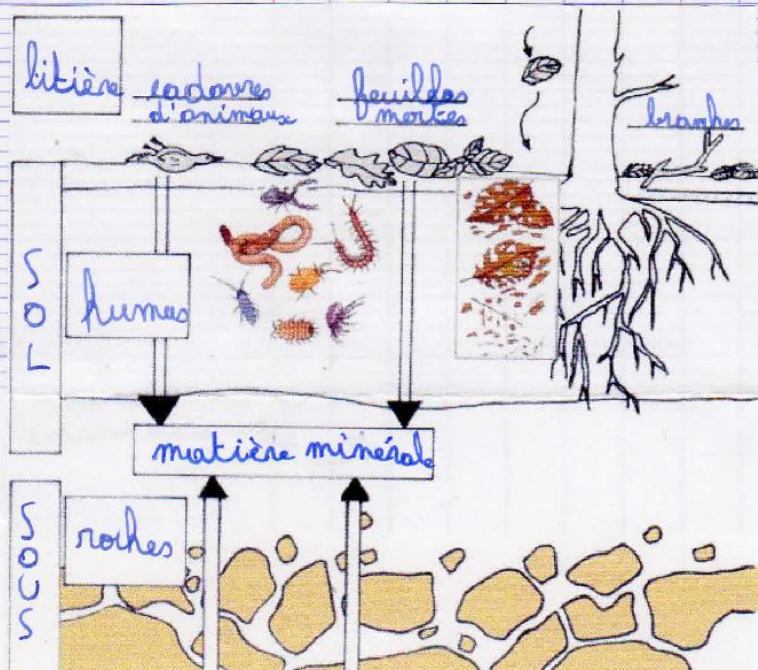 litière
cadavres
d'animaux
feuilles
mortes
branches
SOL
humus
matière minérale
SOUS
roches